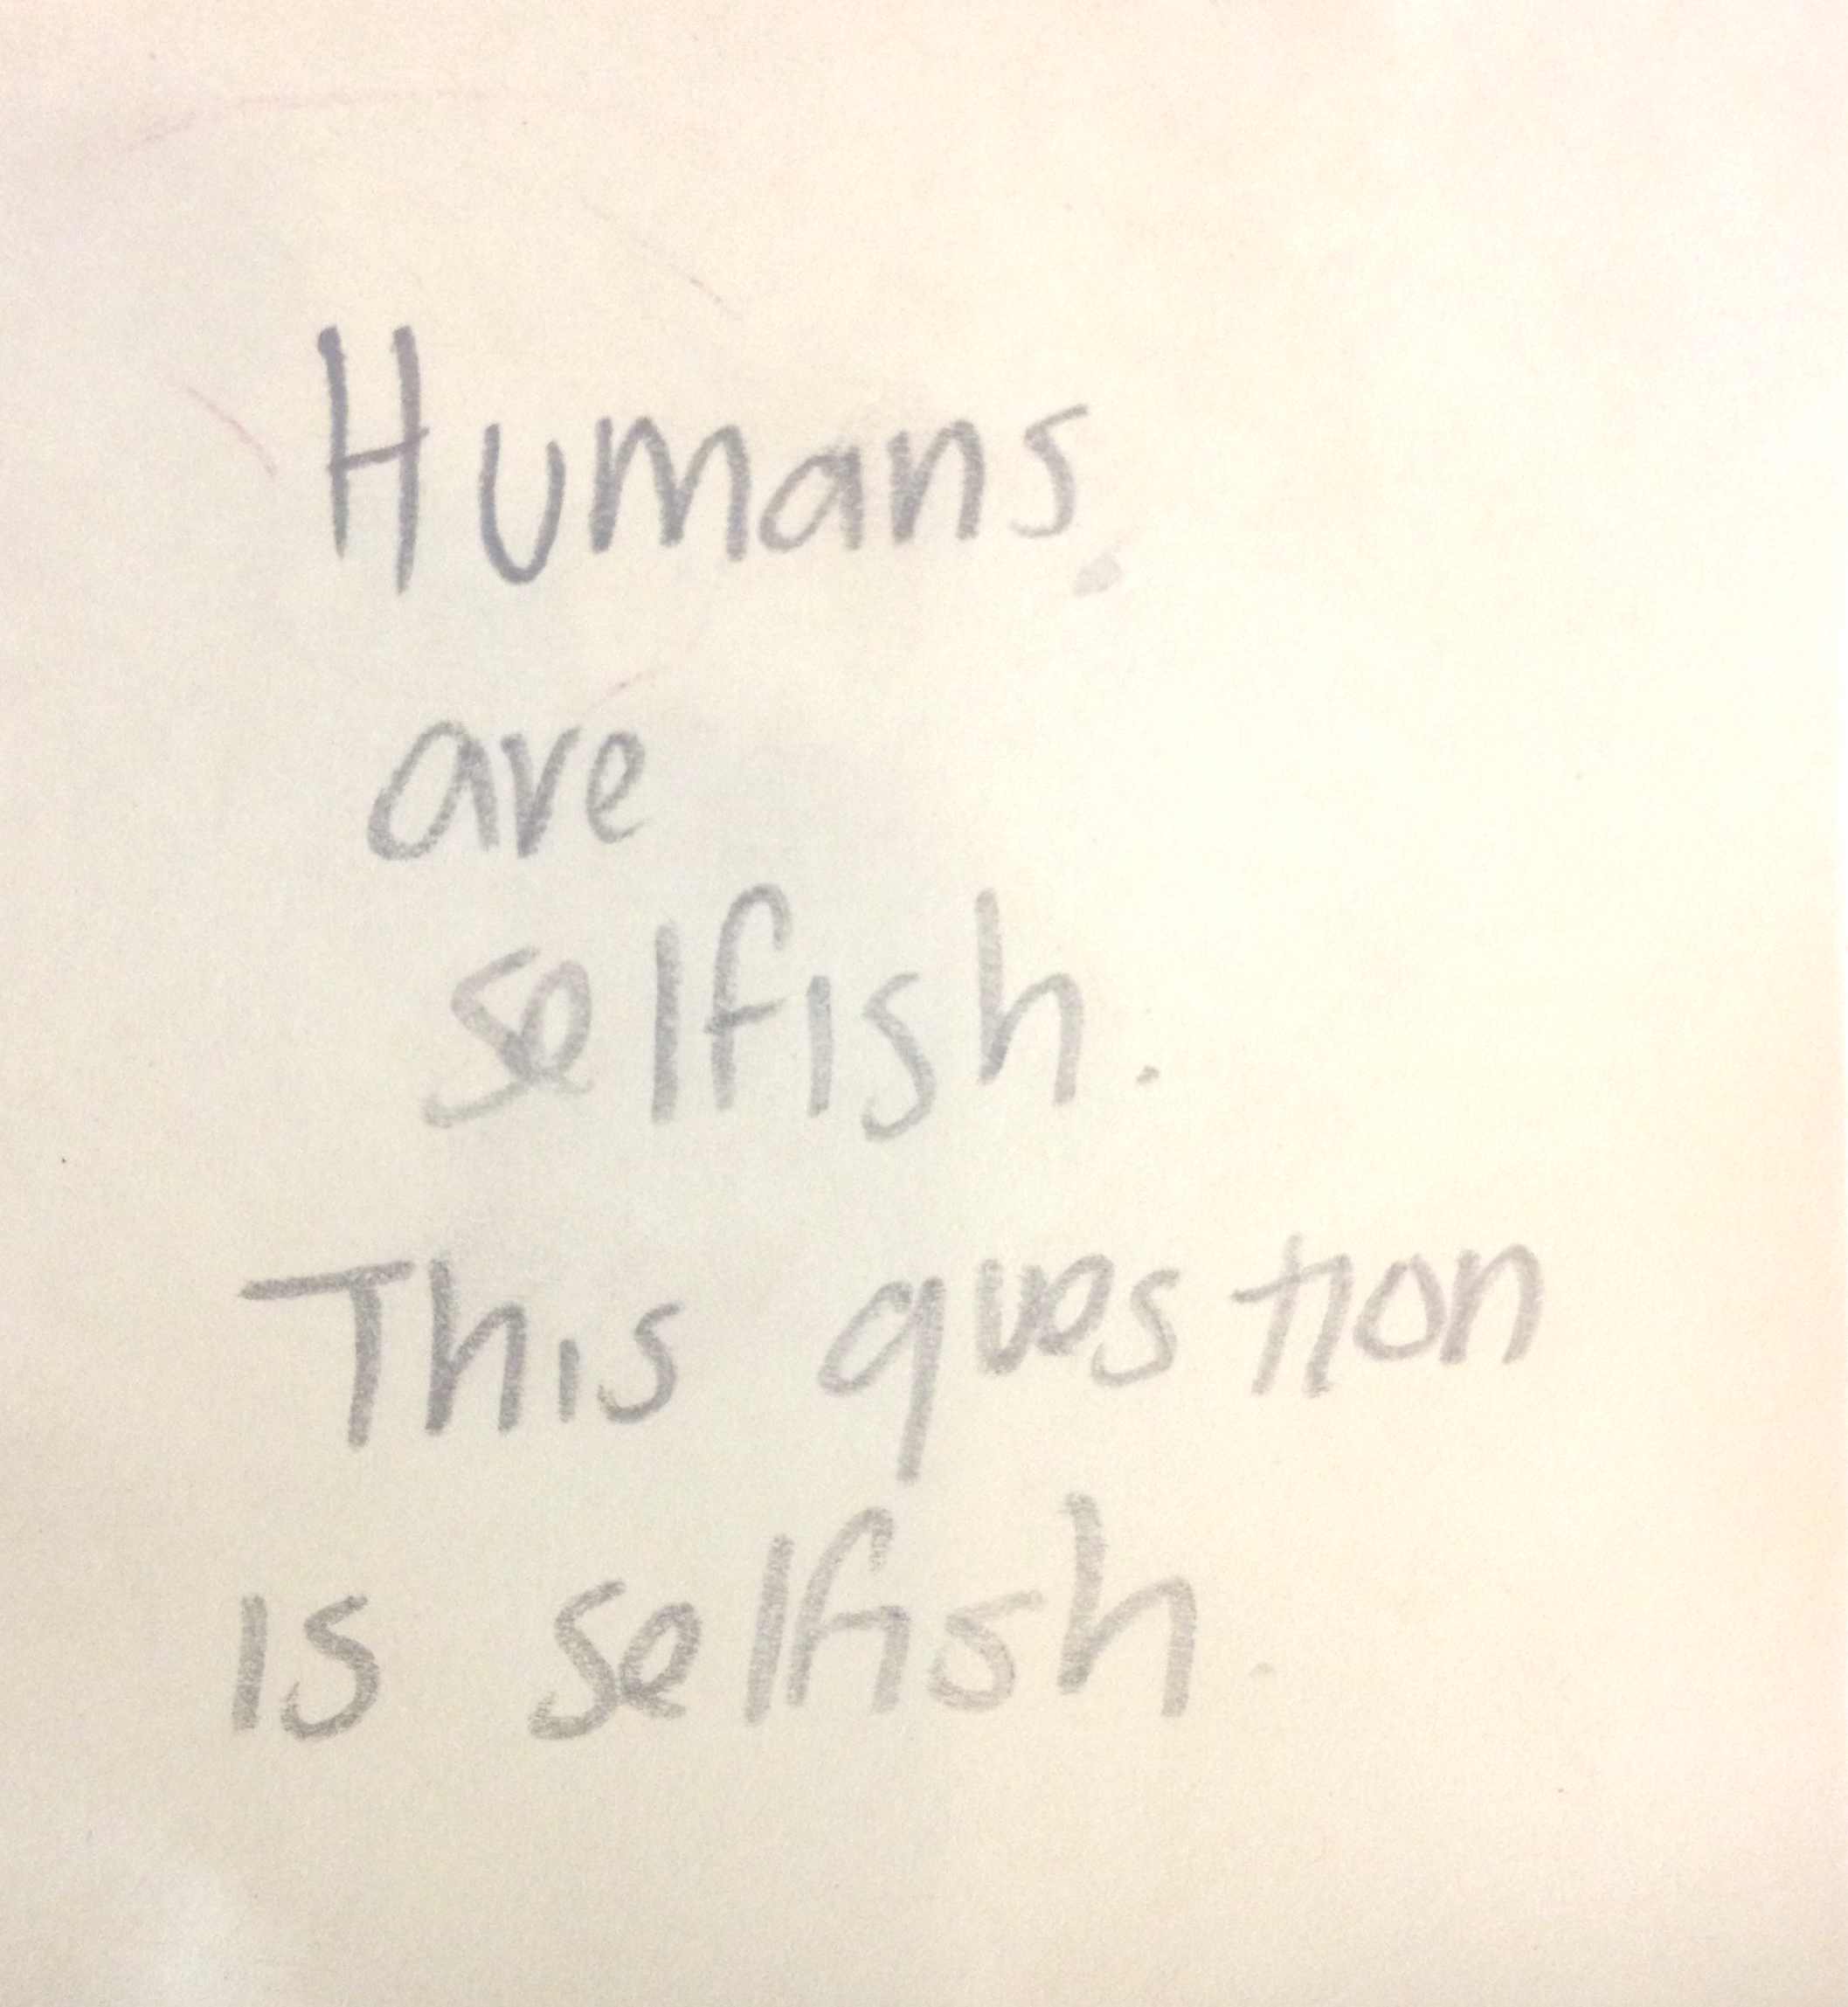 Humans
are
selfish.
This question
is selfish.